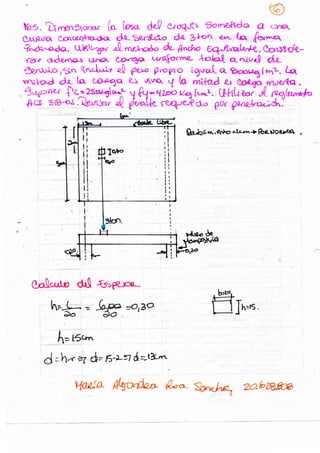 6
16.5. Dimensionar la losa del croquis Sometida a una
Cueva concentrada de Servicio de 3 ton en la forma
indicada. Utilizar el método de Ancho Equivalente. Conside-
rar además una carga uniforme total a nivel de
Servicio, sin incluir el peso propio igual a 800 kg/m². La
mitad de la carga es viva y la mitad es carga muerta.
Suponer f'c=250kg/cm² y fy=4200 kg/cm². Utilizar el reglamento
ACI 318-02. Revisar el peralte requerido por penetración.
6m
Borde libre
3 ton
Muro de
Mampostería
0,20
0,20
Calculo del Espesor.
h = L/20 = 6,00/20 = 0,30
h=15.
h = 15cm
d = h-r ⇒ d = 15-2 ⇒ d = 13cm
María Alejandra Roa Sanchez